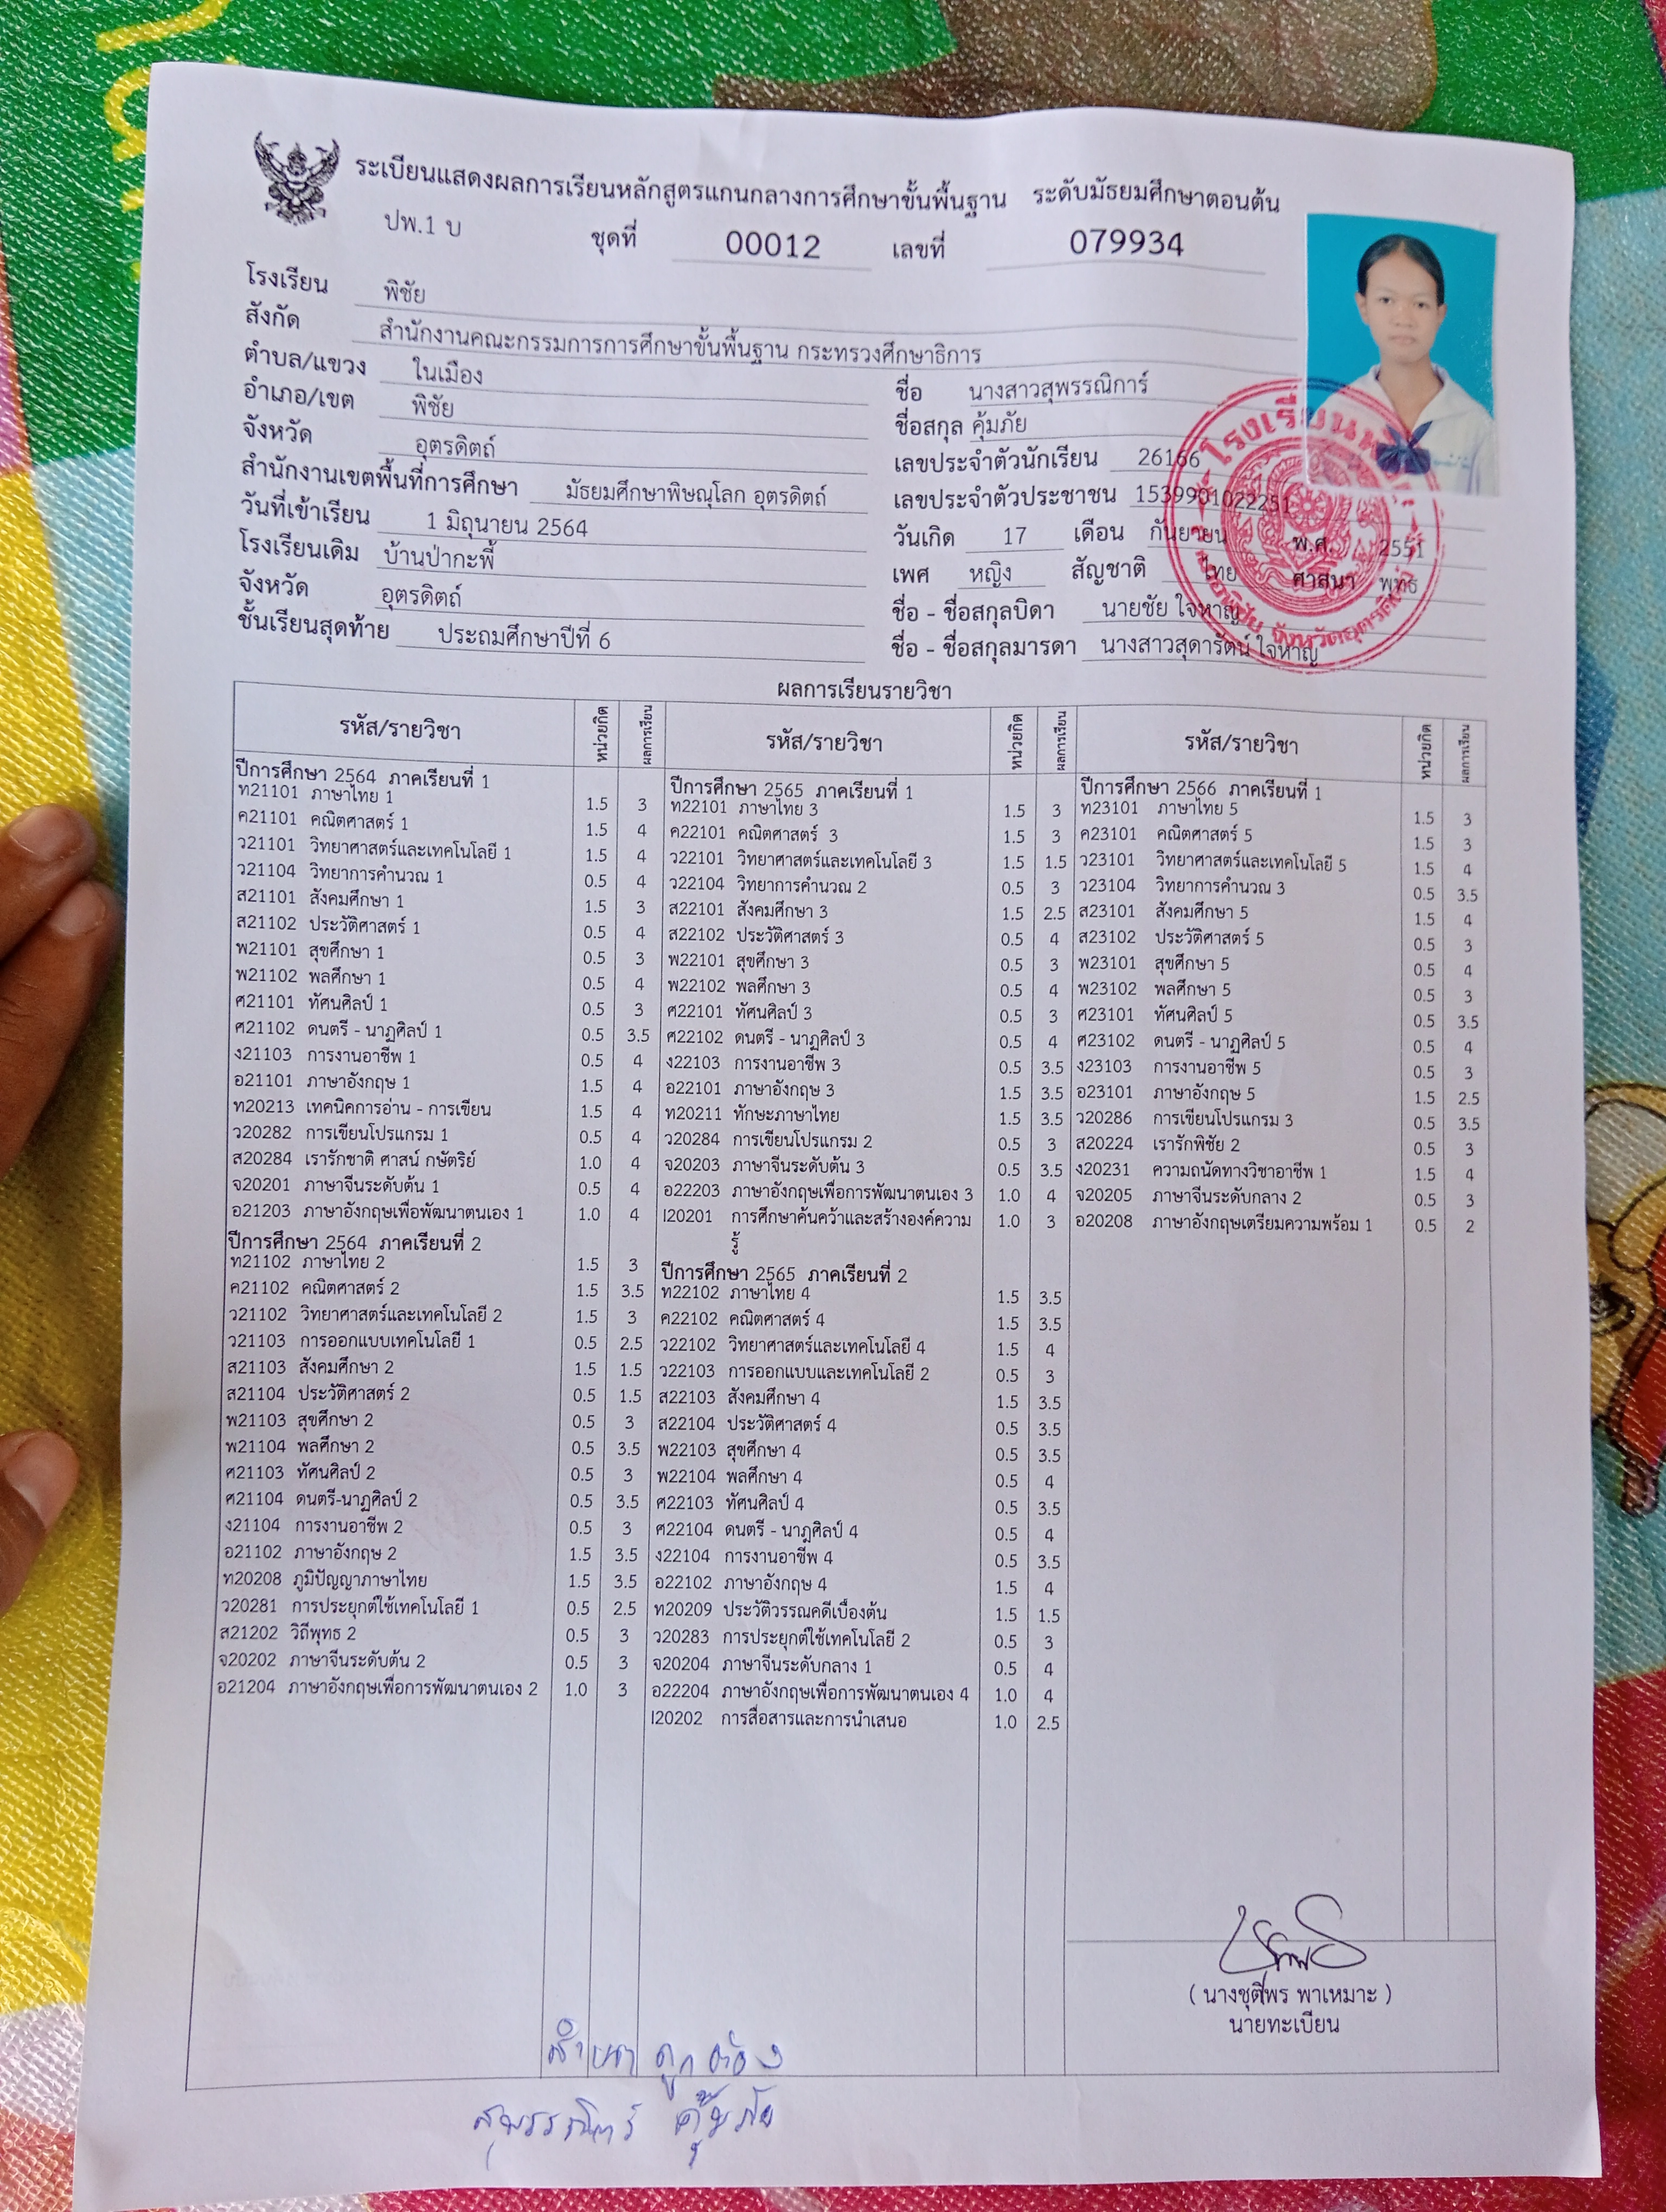 ระเบียนแสดงผลการเรียนหลักสูตรแกนกลางการศึกษาขั้นพื้นฐาน ระดับมัธยมศึกษาตอนต้น
ปพ.1 บ ชุดที่ 00012 เลขที่ 079934
โรงเรียน พิชัย
สังกัด สำนักงานคณะกรรมการการศึกษาขั้นพื้นฐาน กระทรวงศึกษาธิการ
ตำบล/แขวง ในเมือง
อำเภอ/เขต พิชัย
จังหวัด อุตรดิตถ์
สำนักงานเขตพื้นที่การศึกษา มัธยมศึกษาพิษณุโลก อุตรดิตถ์
วันที่เข้าเรียน 1 มิถุนายน 2564
โรงเรียนเดิม บ้านป่ากะพี้
จังหวัด อุตรดิตถ์
ชั้นเรียนสุดท้าย ประถมศึกษาปีที่ 6
ชื่อ นางสาวสุพรรณิการ์
ชื่อสกุล คุ้มภัย
เลขประจำตัวนักเรียน 26166
เลขประจำตัวประชาชน 1539901022251
วันเกิด 17 เดือน กันยายน พ.ศ. 2551
เพศ หญิง สัญชาติ ไทย ศาสนา พุทธ
ชื่อ - ชื่อสกุลบิดา นายชัย ใจหาญ
ชื่อ - ชื่อสกุลมารดา นางสาวสุดารัตน์ ใจหาญ
ผลการเรียนรายวิชา
รหัส/รายวิชา หน่วยกิต ผลการเรียน
ปีการศึกษา 2564 ภาคเรียนที่ 1
ท21101 ภาษาไทย 1 1.5 3
ค21101 คณิตศาสตร์ 1 1.5 4
ว21101 วิทยาศาสตร์และเทคโนโลยี 1 1.5 4
ว21104 วิทยาการคำนวณ 1 0.5 4
ส21101 สังคมศึกษา 1 1.5 3
ส21102 ประวัติศาสตร์ 1 0.5 4
พ21101 สุขศึกษา 1 0.5 3
พ21102 พลศึกษา 1 0.5 4
ศ21101 ทัศนศิลป์ 1 0.5 3
ศ21102 ดนตรี - นาฏศิลป์ 1 0.5 3.5
ง21103 การงานอาชีพ 1 0.5 4
อ21101 ภาษาอังกฤษ 1 1.5 4
ท20213 เทคนิคการอ่าน - การเขียน 1.5 4
ว20282 การเขียนโปรแกรม 1 0.5 4
ส20284 เรารักชาติ ศาสน์ กษัตริย์ 1.0 4
จ20201 ภาษาจีนระดับต้น 1 0.5 4
อ21203 ภาษาอังกฤษเพื่อพัฒนาตนเอง 1 1.0 4
ปีการศึกษา 2564 ภาคเรียนที่ 2
ท21102 ภาษาไทย 2 1.5 3
ค21102 คณิตศาสตร์ 2 1.5 3.5
ว21102 วิทยาศาสตร์และเทคโนโลยี 2 1.5 3
ว21103 การออกแบบเทคโนโลยี 1 0.5 2.5
ส21103 สังคมศึกษา 2 1.5 1.5
ส21104 ประวัติศาสตร์ 2 0.5 1.5
พ21103 สุขศึกษา 2 0.5 3
พ21104 พลศึกษา 2 0.5 3.5
ศ21103 ทัศนศิลป์ 2 0.5 3
ศ21104 ดนตรี-นาฏศิลป์ 2 0.5 3.5
ง21104 การงานอาชีพ 2 0.5 3
อ21102 ภาษาอังกฤษ 2 1.5 3.5
ท20208 ภูมิปัญญาภาษาไทย 1.5 3.5
ว20281 การประยุกต์ใช้เทคโนโลยี 1 0.5 2.5
ส21202 วิถีพุทธ 2 0.5 3
จ20202 ภาษาจีนระดับต้น 2 0.5 3
อ21204 ภาษาอังกฤษเพื่อการพัฒนาตนเอง 2 1.0 3
รหัส/รายวิชา หน่วยกิต ผลการเรียน
ปีการศึกษา 2565 ภาคเรียนที่ 1
ท22101 ภาษาไทย 3 1.5 3
ค22101 คณิตศาสตร์ 3 1.5 3
ว22101 วิทยาศาสตร์และเทคโนโลยี 3 1.5 1.5
ว22104 วิทยาการคำนวณ 2 0.5 3
ส22101 สังคมศึกษา 3 1.5 2.5
ส22102 ประวัติศาสตร์ 3 0.5 4
พ22101 สุขศึกษา 3 0.5 3
พ22102 พลศึกษา 3 0.5 4
ศ22101 ทัศนศิลป์ 3 0.5 3
ศ22102 ดนตรี - นาฏศิลป์ 3 0.5 4
ง22103 การงานอาชีพ 3 0.5 3.5
อ22101 ภาษาอังกฤษ 3 1.5 3.5
ท20211 ทักษะภาษาไทย 1.5 3.5
ว20284 การเขียนโปรแกรม 2 0.5 3
จ20203 ภาษาจีนระดับต้น 3 0.5 3.5
อ22203 ภาษาอังกฤษเพื่อการพัฒนาตนเอง 3 1.0 4
I20201 การศึกษาค้นคว้าและสร้างองค์ความ 1.0 3
รู้
ปีการศึกษา 2565 ภาคเรียนที่ 2
ท22102 ภาษาไทย 4 1.5 3.5
ค22102 คณิตศาสตร์ 4 1.5 3.5
ว22102 วิทยาศาสตร์และเทคโนโลยี 4 1.5 4
ว22103 การออกแบบและเทคโนโลยี 2 0.5 3
ส22103 สังคมศึกษา 4 1.5 3.5
ส22104 ประวัติศาสตร์ 4 0.5 3.5
พ22103 สุขศึกษา 4 0.5 3.5
พ22104 พลศึกษา 4 0.5 4
ศ22103 ทัศนศิลป์ 4 0.5 3.5
ศ22104 ดนตรี - นาฏศิลป์ 4 0.5 4
ง22104 การงานอาชีพ 4 0.5 3.5
อ22102 ภาษาอังกฤษ 4 1.5 4
ท20209 ประวัติวรรณคดีเบื้องต้น 1.5 1.5
ว20283 การประยุกต์ใช้เทคโนโลยี 2 0.5 3
จ20204 ภาษาจีนระดับกลาง 1 0.5 4
อ22204 ภาษาอังกฤษเพื่อการพัฒนาตนเอง 4 1.0 4
I20202 การสื่อสารและการนำเสนอ 1.0 2.5
รหัส/รายวิชา หน่วยกิต ผลการเรียน
ปีการศึกษา 2566 ภาคเรียนที่ 1
ท23101 ภาษาไทย 5 1.5 3
ค23101 คณิตศาสตร์ 5 1.5 3
ว23101 วิทยาศาสตร์และเทคโนโลยี 5 1.5 4
ว23104 วิทยาการคำนวณ 3 0.5 3.5
ส23101 สังคมศึกษา 5 1.5 4
ส23102 ประวัติศาสตร์ 5 0.5 3
พ23101 สุขศึกษา 5 0.5 4
พ23102 พลศึกษา 5 0.5 3
ศ23101 ทัศนศิลป์ 5 0.5 3.5
ศ23102 ดนตรี - นาฏศิลป์ 5 0.5 4
ง23103 การงานอาชีพ 5 0.5 3
อ23101 ภาษาอังกฤษ 5 1.5 2.5
ว20286 การเขียนโปรแกรม 3 0.5 3.5
ส20224 เรารักพิชัย 2 0.5 3
ง20231 ความถนัดทางวิชาอาชีพ 1 1.5 4
จ20205 ภาษาจีนระดับกลาง 2 0.5 3
อ20208 ภาษาอังกฤษเตรียมความพร้อม 1 0.5 2
( นางชุติพร พาเหมาะ )
นายทะเบียน
สำเนา ถูกต้อง
สุพรรณิการ์ คุ้มภัย